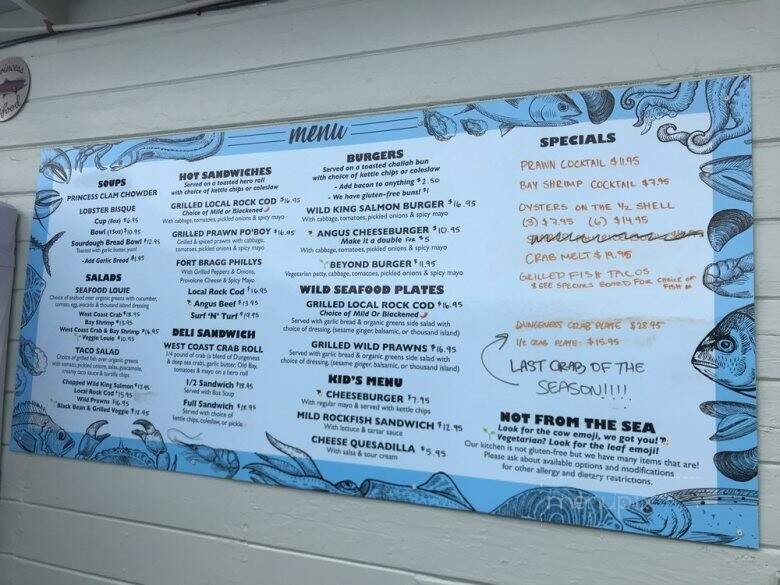 menu
SOUPS
PRINCESS CLAM CHOWDER
LOBSTER BISQUE
Cup (8oz) $6.95
Bowl (15oz) $10.95
Sourdough Bread Bowl $12.95
Toasted with garlic butter, yum!
-Add Garlic Bread $1.95
SALADS
SEAFOOD LOUIE
Choice of seafood over organic greens with cucumber,
tomato, egg, avocado & thousand island dressing
West Coast Crab $18.95
Bay Shrimp $15.95
West Coast Crab & Bay Shrimp $16.95
Veggie Louie $10.95
TACO SALAD
Choice of grilled fish over organic greens
with tomato, pickled onions, salsa, guacamole,
creamy taco sauce & tortilla chips
Chopped Wild King Salmon $17.95
Local Rock Cod $15.95
Wild Prawns $16.95
Black Bean & Grilled Veggie $12.95
HOT SANDWICHES
Served on a toasted hero roll
with choice of kettle chips or coleslaw
GRILLED LOCAL ROCK COD $16.95
Choice of Mild or Blackened
With cabbage, tomatoes, pickled onions & spicy mayo
GRILLED PRAWN PO'BOY $16.95
Grilled & spiced prawns with cabbage,
tomatoes, pickled onions & spicy mayo
FORT BRAGG PHILLYS
With Grilled Peppers & Onions,
Provolone Cheese & Spicy Mayo
Local Rock Cod $16.95
Angus Beef $13.95
Surf 'N' Turf $19.95
DELI SANDWICH
WEST COAST CRAB ROLL
1/4 pound of crab (a blend of Dungeness
& deep sea crab), garlic butter, Old Bay,
tomatoes & mayo on a hero roll
1/2 Sandwich $18.95
Served with 8oz Soup
Full Sandwich
Served with choice of
kettle chips, coleslaw, or pickle
BURGERS
Served on a toasted challah bun
with choice of kettle chips or coleslaw
- Add bacon to anything $2.50
- We have gluten-free buns! $1
WILD KING SALMON BURGER $16.95
With cabbage, tomatoes, pickled onions & spicy mayo
ANGUS CHEESEBURGER $10.95
Make it a double FOR $5
With cabbage, tomatoes, pickled onions & spicy mayo
BEYOND BURGER $11.95
Vegetarian patty, cabbage, tomatoes, pickled onions & spicy mayo
WILD SEAFOOD PLATES
GRILLED LOCAL ROCK COD $16.95
Choice of Mild Or Blackened
Served with garlic bread & organic greens side salad with
choice of dressing, (sesame ginger, balsamic, or thousand island)
GRILLED WILD PRAWNS $16.95
Served with garlic bread & organic greens side salad with
choice of dressing, (sesame ginger, balsamic, or thousand island)
KID'S MENU
CHEESEBURGER $7.95
With regular mayo & served with kettle chips
MILD ROCKFISH SANDWICH $12.95
With lettuce & tartar sauce
CHEESE QUESADILLA $5.95
With salsa & sour cream
SPECIALS
PRAWN COCKTAIL $11.95
BAY SHRIMP COCKTAIL $7.95
OYSTERS ON THE 1/2 SHELL
(3) $7.95 (6) $14.95
CRAB MELT $19.95
GRILLED FISH TACOS
SEE SPECIALS BOARD FOR CHOICE OF FISH
DUNGENESS CRAB PLATE $28.95
1/2 CRAB PLATE $15.95
LAST CRAB OF THE
SEASON!!!!
NOT FROM THE SEA
Look for the cow emoji, we got you!
Vegetarian? Look for the leaf emoji!
Our kitchen is not gluten-free but we have many items that are!
Please ask about available options and modifications
for other allergy and dietary restrictions.